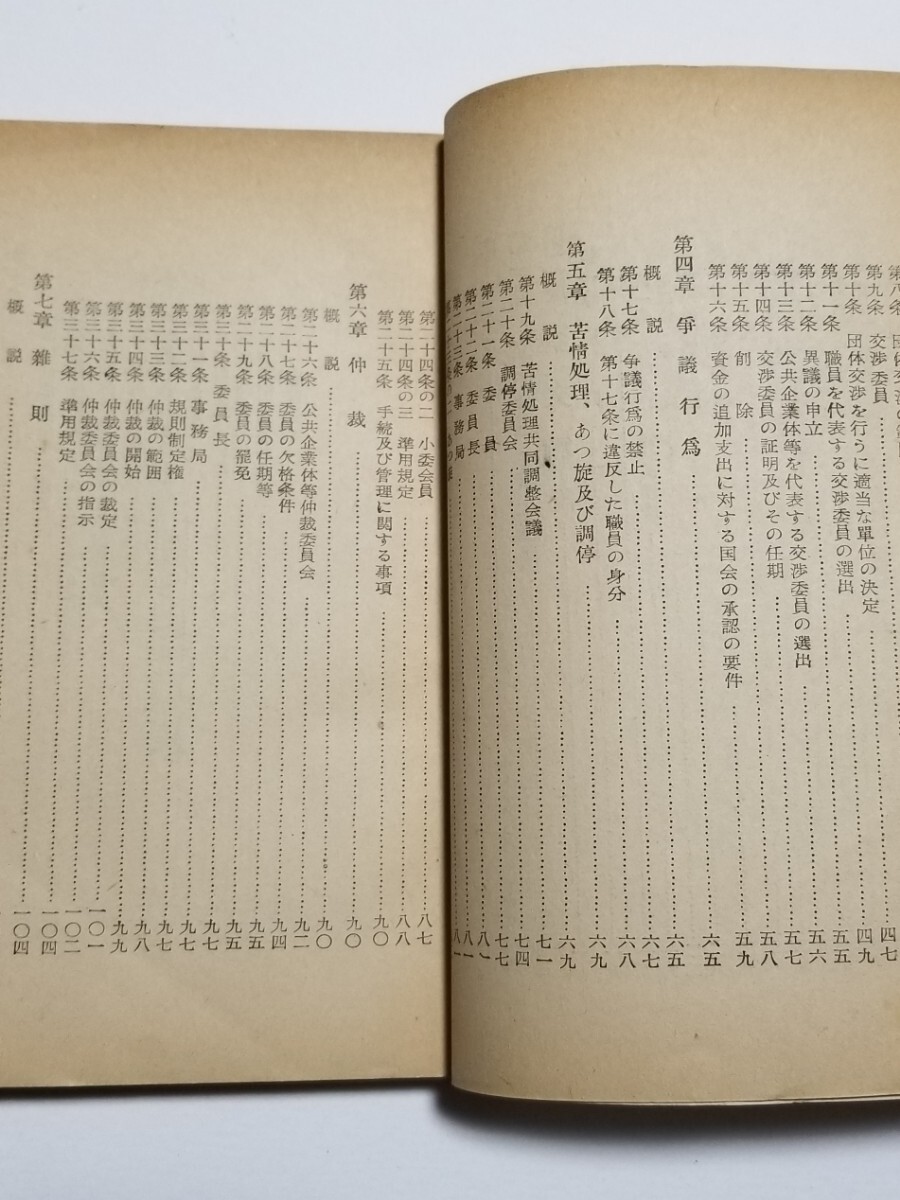 第九条 交渉委員……四七
第十条 団体交渉を行うに適当な單位の決定……四九
第十一条 職員を代表する交渉委員の選出……五五
第十二条 異議の申立……五六
第十三条 公共企業体等を代表する交渉委員の選出……五七
第十四条 交渉委員の証明及びその任期……五八
第十五条 創除……五九
第十六条 資金の追加支出に対する国会の承認の要件……六五
第四章 爭議行爲……六五
概説……六七
第十七条 争議行爲の禁止……六七
第十八条 第十七条に違反した職員の身分……六八
第五章 苦情処理、あつ旋及び調停……六九
概説……六九
第十九条 苦情処理共同調整会議……七一
第二十条 調停委員会……七四
第二十一条 委員……七七
第二十二条 委員長……八一
第二十三条 事務局……八一
第二十四条の二 小委会員……八七
第二十四条の三 準用規定……八八
第二十五条 手続及び管理に関する事項……九〇
第六章 仲裁……九〇
概説……九〇
第二十六条 公共企業体等仲裁委員会……九二
第二十七条 委員の欠格条件……九四
第二十八条 委員の任期等……九五
第二十九条 委員の罷免……九五
第三十条 委員長……九七
第三十一条 事務局……九七
第三十二条 規則制定権……九七
第三十三条 仲裁の範囲……九七
第三十四条 仲裁の開始……九八
第三十五条 仲裁委員会の裁定……九九
第三十六条 仲裁委員会の指示……一〇一
第三十七条 準用規定……一〇二
第七章 雜則……一〇四
概説……一〇四